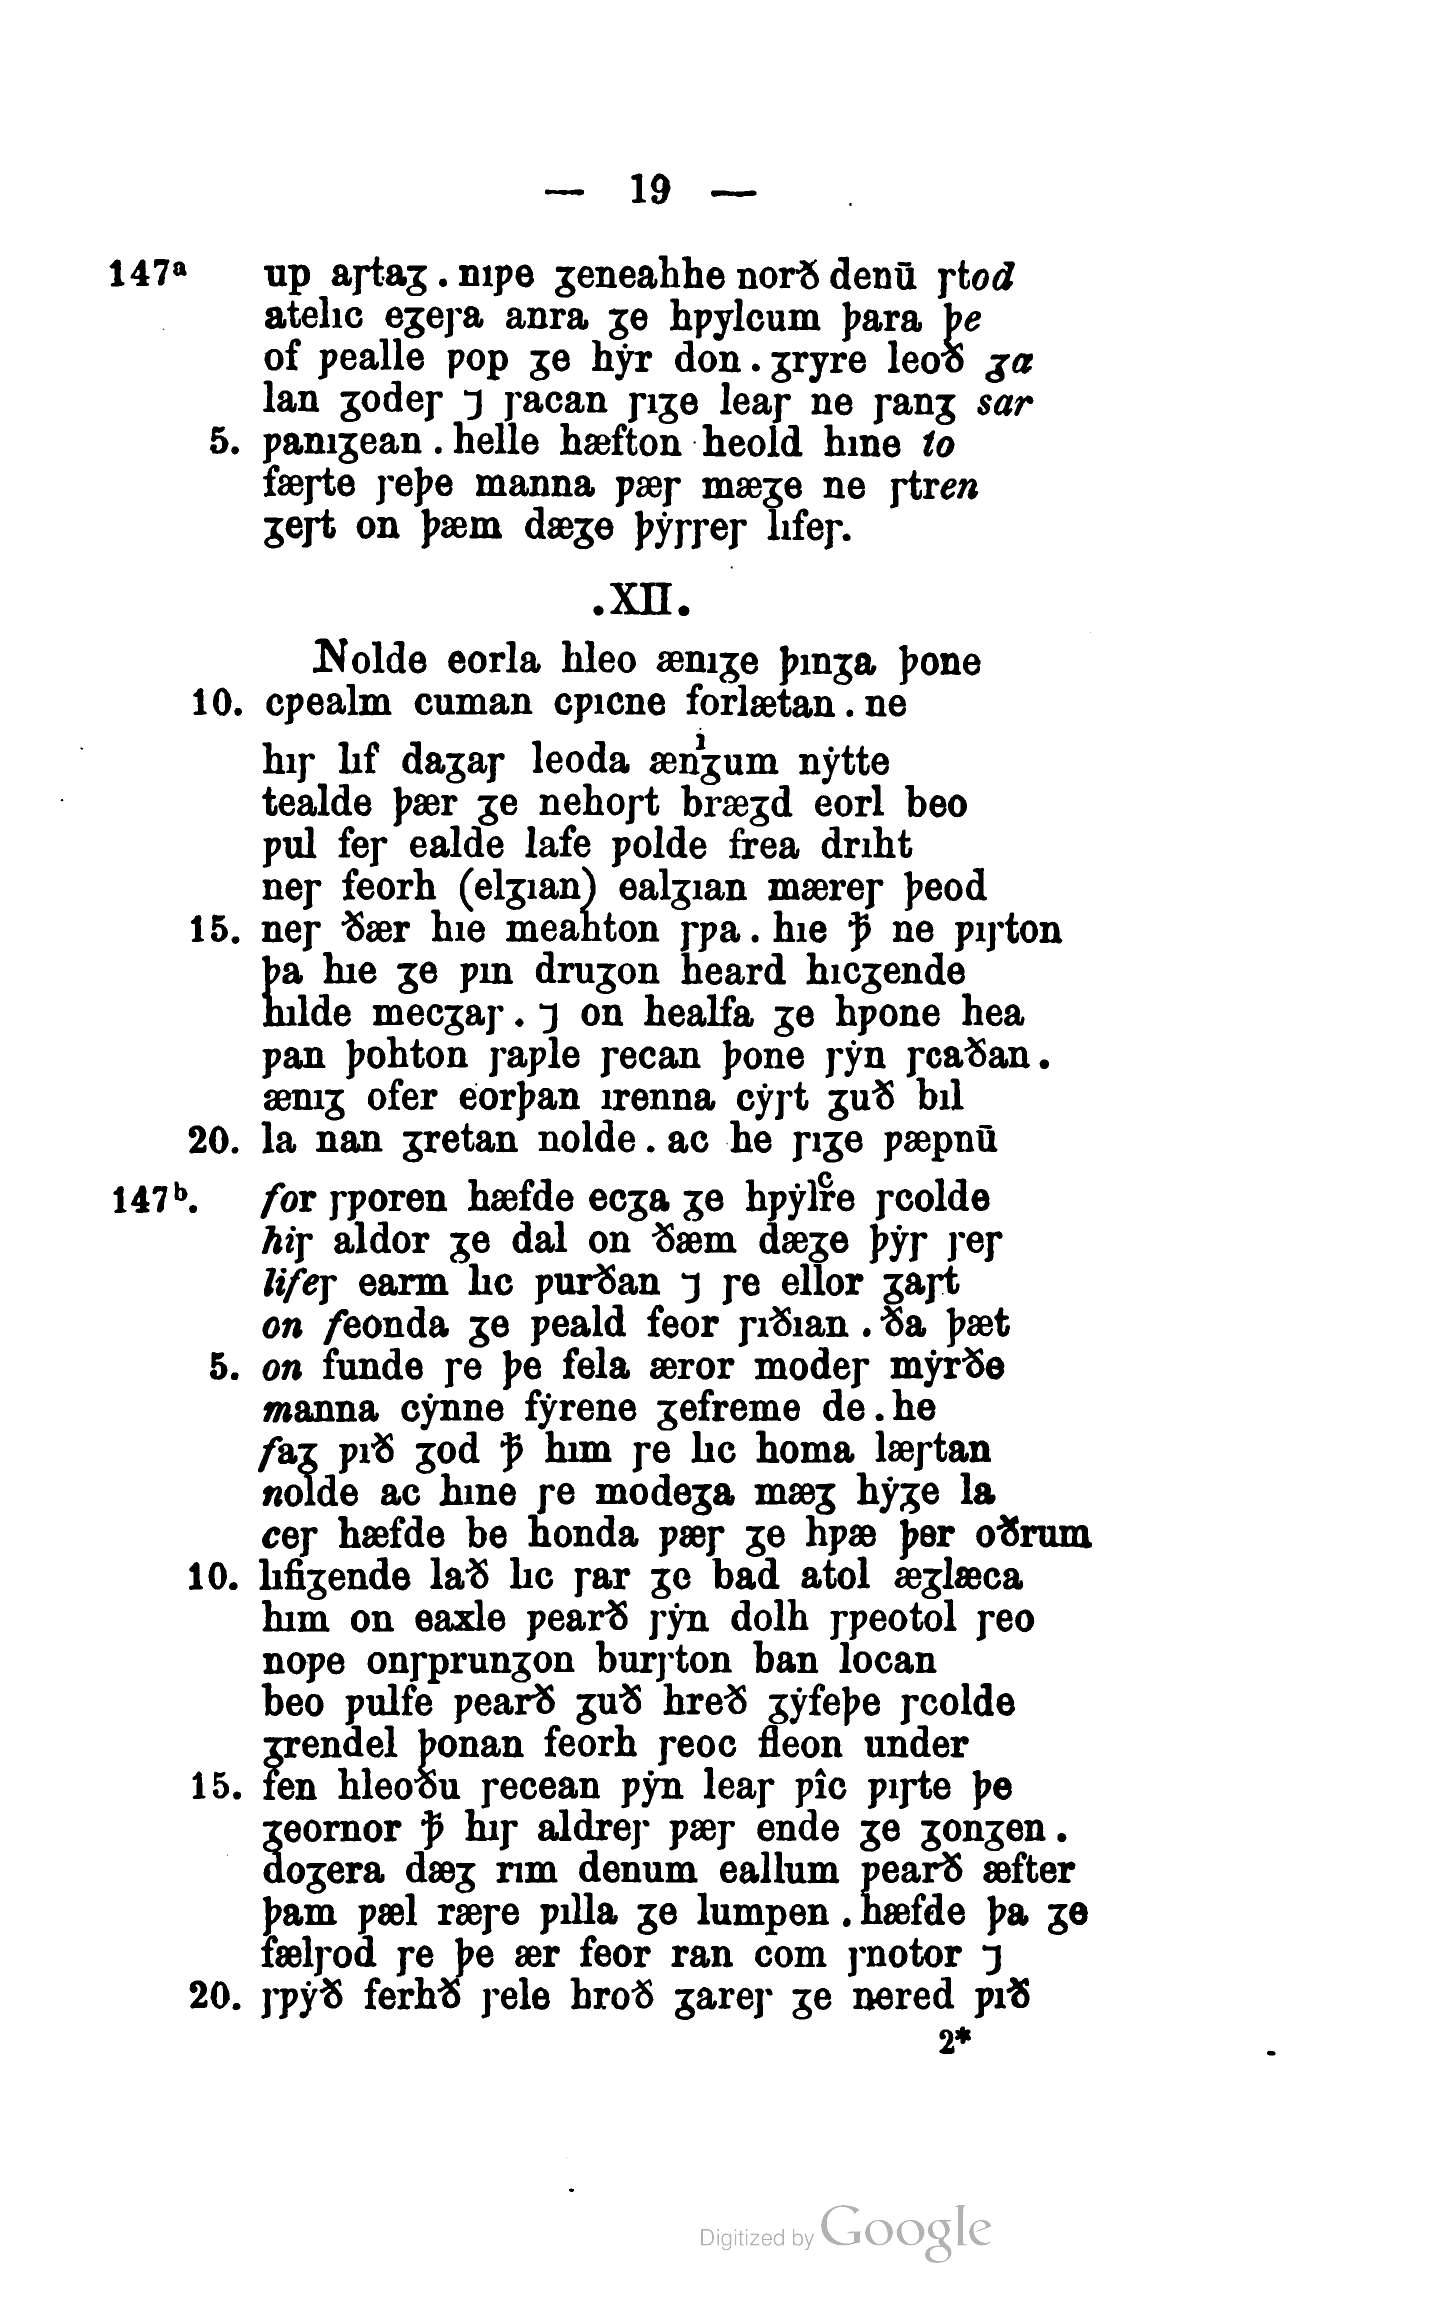 — 19 —
147ª up aꞅtaȝ . nıpe ȝeneahhe norð denū ꞅtod
atelıc eȝeꞅa anra ȝe hpylcum þara þe
of pealle pop ȝe hẏr don . ȝryre leoð ȝa
lan ȝodeꞅ ⁊ ꞅacan ꞅıȝe leaꞅ ne ꞅanȝ sar
5. panıȝean . helle hæfton heold hıne to
fæꞅte ꞅeþe manna pæꞅ mæȝe ne ꞅtren
ȝeꞅt on þæm dæȝe þẏꞅꞅeꞅ lıfeꞅ.
.XII.
Nolde eorla hleo ænıȝe þınȝa þone
10. cpealm cuman cpıcne forlætan . ne
hıꞅ lıf daȝaꞅ leoda ænⁱȝum nẏtte
tealde þær ȝe nehoꞅt bræȝd eorl beo
pul feꞅ ealde lafe polde frea drıht
neꞅ feorh (elȝıan) ealȝıan mæreꞅ þeod
15. neꞅ ðær hıe meahton ꞅpa . hıe ꝥ ne pıꞅton
þa hıe ȝe pın druȝon heard hıcȝende
hılde mecȝaꞅ . ⁊ on healfa ȝe hpone hea
pan þohton ꞅaple ꞅecan þone ꞅẏn ꞅcaðan .
ænıȝ ofer eorþan ırenna cẏꞅt ȝuð bıl
20. la nan ȝretan nolde . ac he ꞅıȝe pæpnū
147ᵇ. for ꞅporen hæfde ecȝa ȝe hpẏlrͨe ꞅcolde
hiꞅ aldor ȝe dal on ðæm dæȝe þẏꞅ ꞅeꞅ
lifeꞅ earm lıc purðan ⁊ ꞅe ellor ȝaꞅt
on feonda ȝe peald feor ꞅıðıan . ða þæt
5. on funde ꞅe þe fela æror modeꞅ mẏrðe
manna cẏnne fẏrene ȝefreme de . he
faȝ pıð ȝod ꝥ hım ꞅe lıc homa læꞅtan
nolde ac hıne ꞅe modeȝa mæȝ hẏȝe la
ceꞅ hæfde be honda pæꞅ ȝe hpæ þer oðrum
10. lıfıȝende lað lıc ꞅar ȝe bad atol æȝlæca
hım on eaxle pearð ꞅẏn dolh ꞅpeotol ꞅeo
nope onꞅprunȝon burꞅton ban locan
beo pulfe pearð ȝuð hreð ȝẏfeþe ꞅcolde
ȝrendel þonan feorh ꞅeoc fleon under
15. fen hleoðu ꞅecean pẏn leaꞅ pîc pıꞅte þe
ȝeornor ꝥ hıꞅ aldreꞅ pæꞅ ende ȝe ȝonȝen .
doȝera dæȝ rım denum eallum pearð æfter
þam pæl ræꞅe pılla ȝe lumpen . hæfde þa ȝe
fælꞅod ꞅe þe ær feor ran com ꞅnotor ⁊
20. ꞅpẏð ferhð ꞅele hroð ȝareꞅ ȝe nered pıð
2*
Digitized by Google